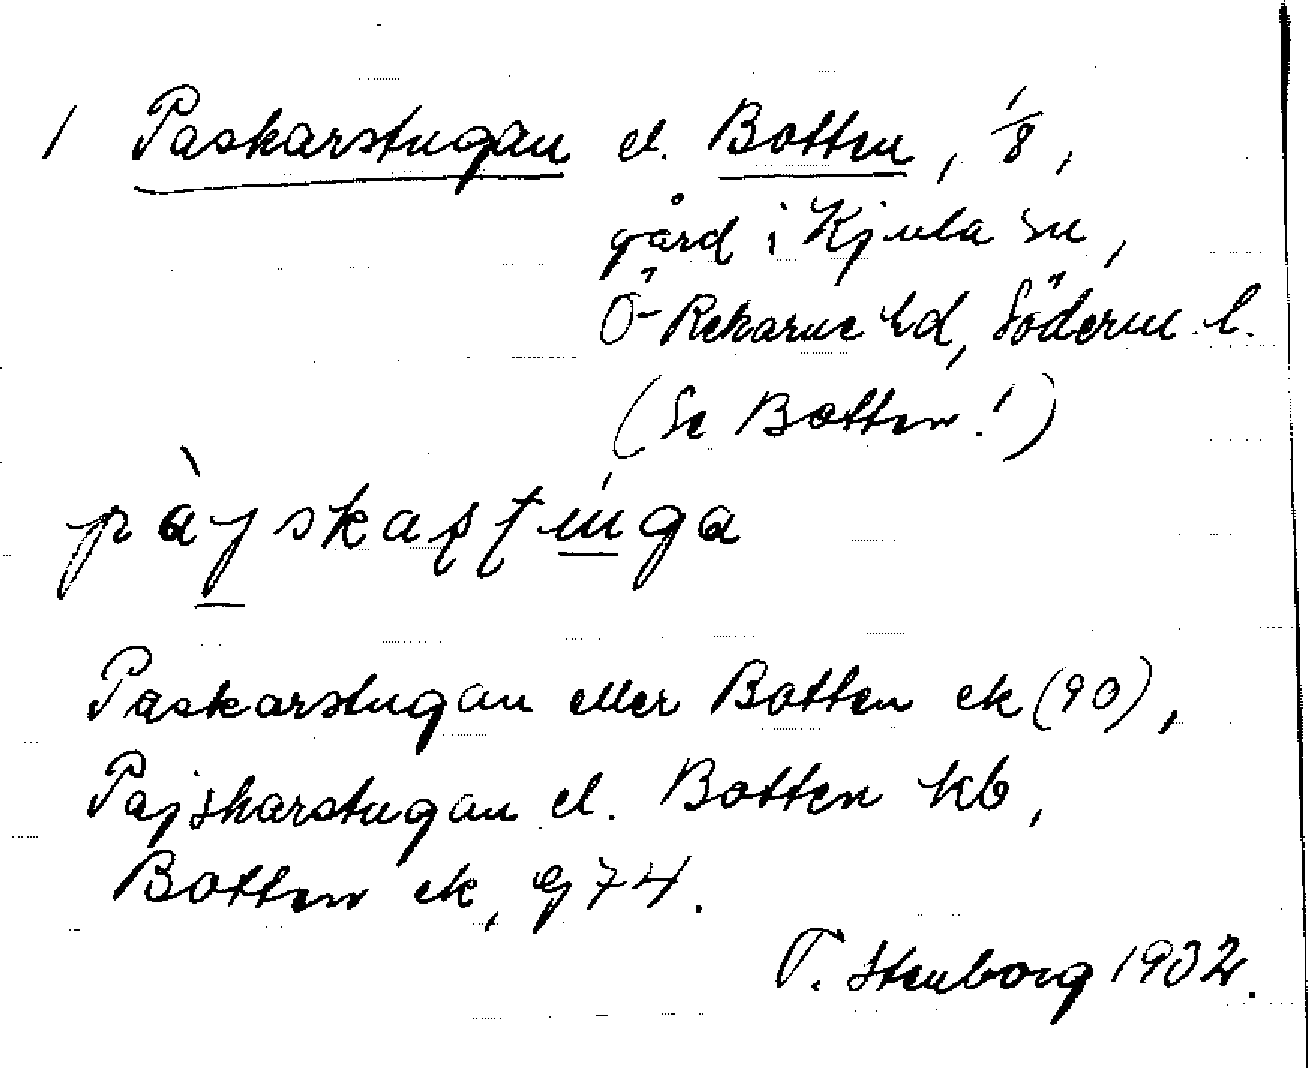 1 Paskarstugan el. Botten, 1/8,
gård i Kjula sn,
Ö-Rekarne hd, Söderm. l.
(Se Botten!)
pàjskaftúga
Paskarstugan eller Botten ek (90),
Pajskarstugan el. Botten kb,
Botten ek, G 74.
T. Stenborg 1932.